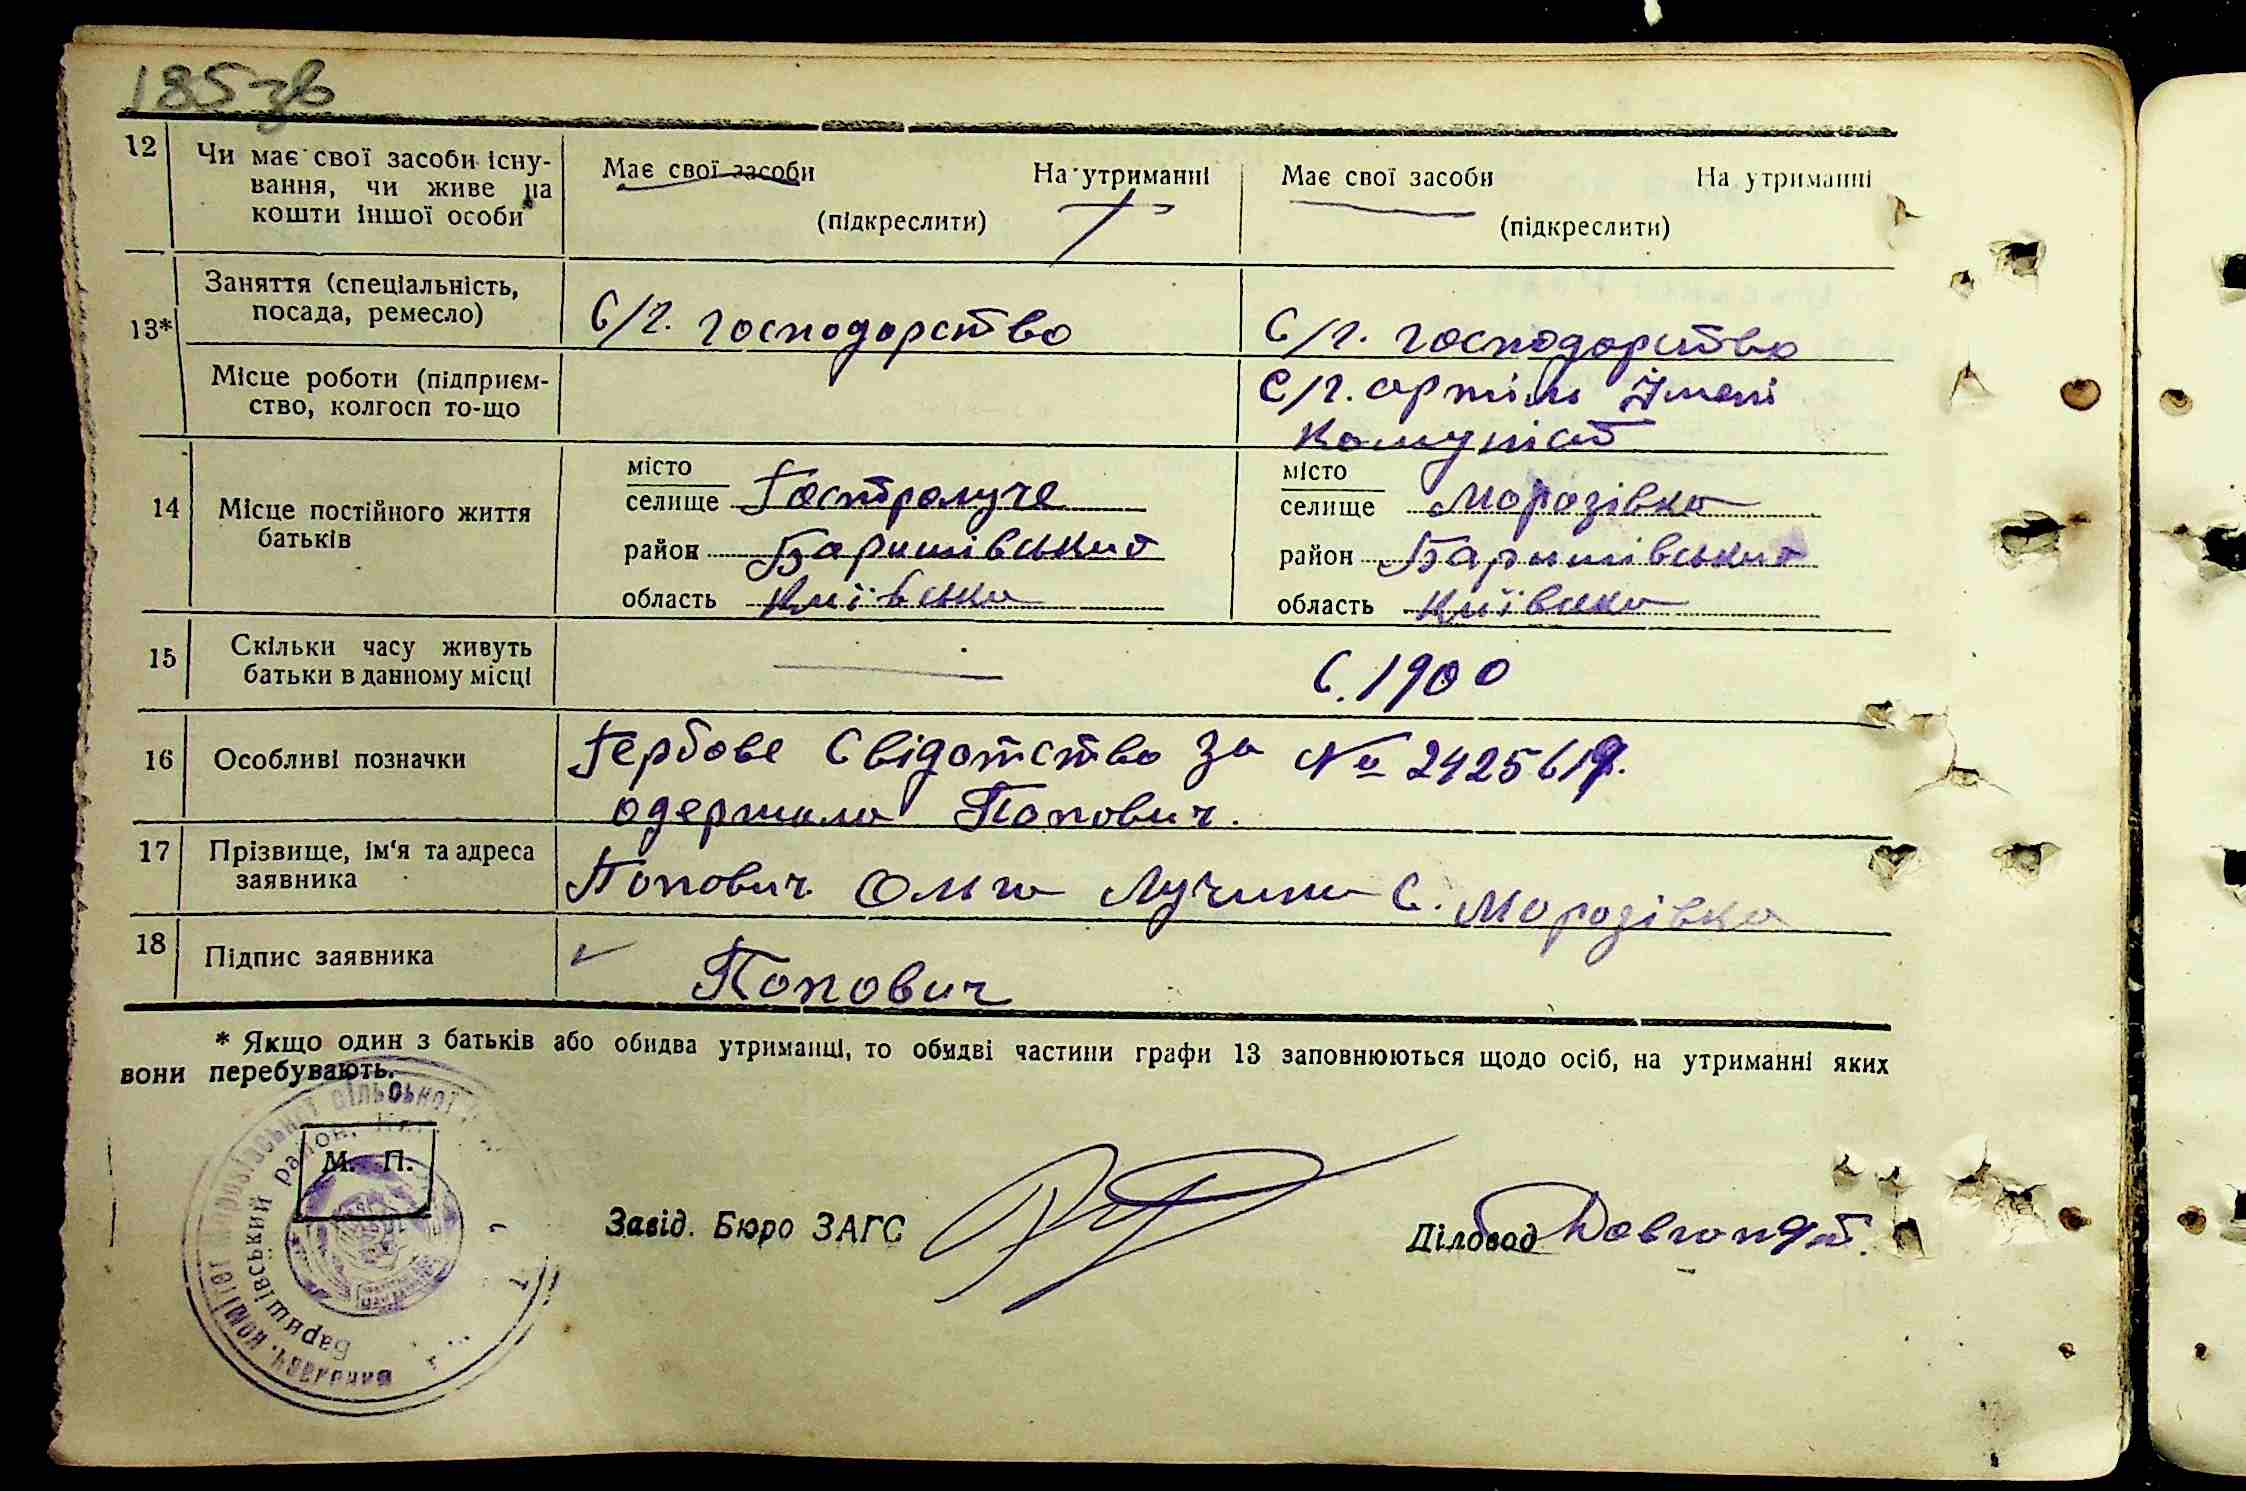 185зв
12 Чи має свої засоби існу- Має свої засоби На утриманні Має свої засоби На утриманні
вання, чи живе на
кошти іншої особи (підкреслити) (підкреслити)
Заняття (спеціальність,
13* посада, ремесло) С/г. господарство С/г. господарство
Місце роботи (підприєм- С/г. артіль Імені
ство, колгосп то-що Комуніст
14 Місце постійного життя місто місто
батьків селище Гостролуче селище Морозівка
район Баришівський район Баришівський
область Київська область Київська
15 Скільки часу живуть
батьки в данному місці — С. 1900
16 Особливі позначки Гербове Свідотство за №
одержала Попович.
17 Прізвище, ім'я та адреса
заявника Попович Ольга С. Морозівка
18 Підпис заявника Попович
* Якщо один з батьків або обидва утриманці, то обидві частини графи 13 заповнюються щодо осіб, на утриманні яких
вони перебувають.
М. П.
Баришівський район,
Завід. Бюро ЗАГС Діловод